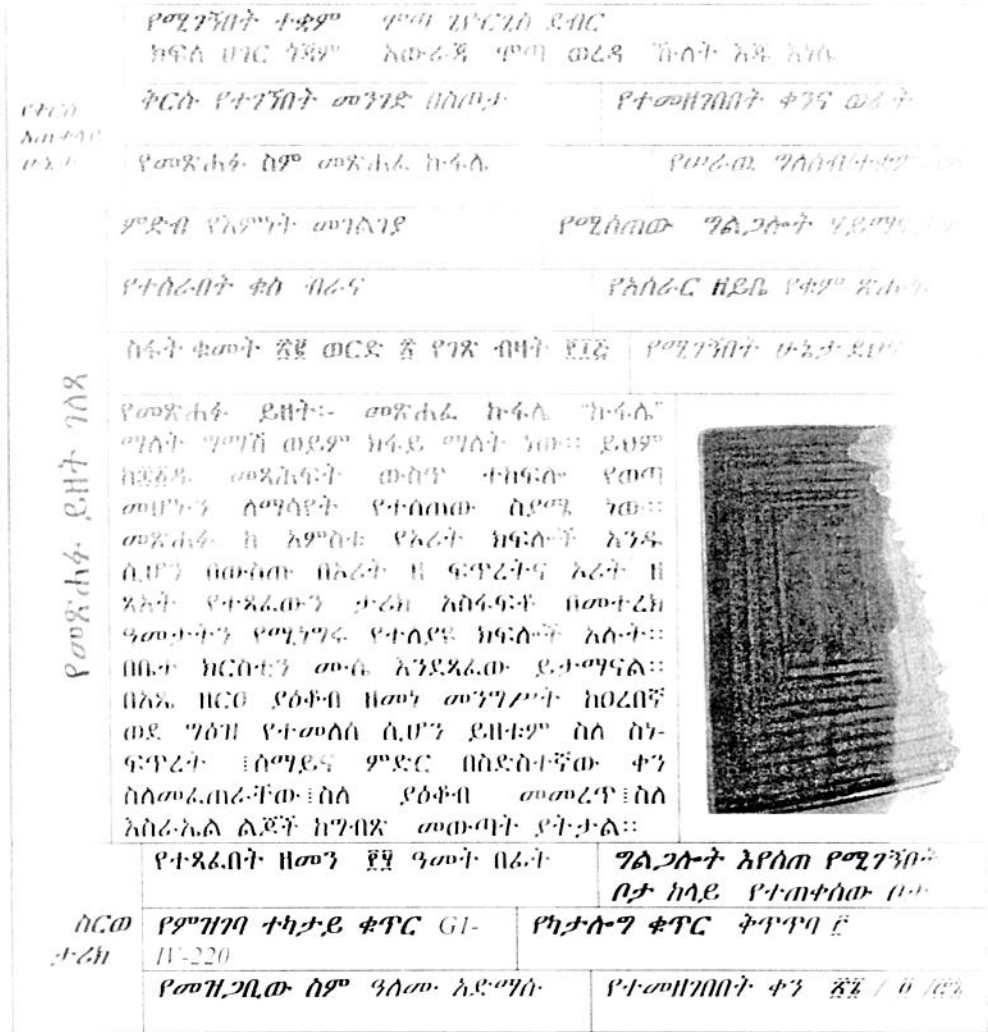 የሚገኝበት ተቋም ሞጣ ጊዮርጊስ ደብር
ክፍለ ሀገር ጎጃም አውራጃ ሞጣ ወረዳ ሁለት እጁ እነሴ
ቅርሱ የተገኘበት መንገድ በስጦታ የተመዘገበበት ቀንና ወራት
የቅርሱ
አጠቃላይ
ሁኔታ
የመጽሐፉ ስም መጽሐፈ ኩፋሌ የሠራዉ ግለሰብ/ተቋም
ምድብ የእምነት መገልገያ የሚሰጠው ግልጋሎት ሃይማኖታዊ
የተሰራበት ቁስ ብራና የአሰራር ዘይቤ የቁም ጽሑፍ
ስፋት ቁመት ወርድ የገጽ ብዛት የሚገኝበት ሁኔታ ደህና
የመጽሐፉ ይዘት ገለጻ
የመጽሐፉ ይዘት፡- መጽሐፈ ኩፋሌ "ኩፋሌ"
ማለት ግማሽ ወይም ክፋይ ማለት ነው። ይህም
መጻሕፍት ውስጥ ተከፍሎ የወጣ
መሆኑን ለማሳየት የተሰጠው ስያሜ ነው።
መጽሐፉ ከ አምስቱ የኦሪት ክፍሎች አንዱ
ሲሆን በውስጡ በኦሪት ዘ ፍጥረትና ኦሪት ዘ
ጸአት የተጻፈውን ታሪክ አስፋፍቶ በመተረክ
ዓመታትን የሚነግሩ የተለያዩ ክፍሎች አሉት።
በቤተ ክርስቲን ሙሴ እንደጻፈው ይታማናል።
በአጼ ዘርዐ ያዕቆብ ዘመነ መንግሥት ከዐረበኛ
ወደ ግዕዝ የተመለሰ ሲሆን ይዘቱም ስለ ስነ-
ፍጥረት ፤ሰማይና ምድር በስድስተኛው ቀን
ስለመፈጠራቸው፤ስለ ያዕቆብ መመረጥ፤ስለ
እስራኤል ልጆች ከግብጽ መውጣት ያትታል።
የተጻፈበት ዘመን ፻፶ ዓመት በፊት ግልጋሎት እየሰጠ የሚገኝበት
ቦታ ከላይ የተጠቀሰው ቦታ
ስርወ
ታሪክ
የምዝገባ ተካታይ ቁጥር G1-
IV-220
የካታሎግ ቁጥር ቅጥጥባ ፫
የመዝጋቢው ስም ዓለሙ አድማሱ የተመዘገበበት ቀን